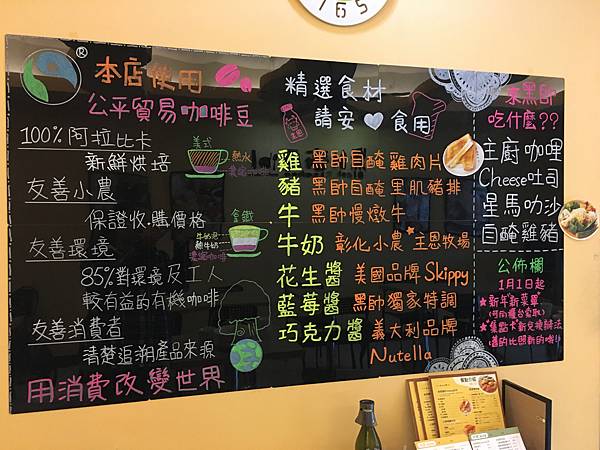 7 6 5
®
本店使用
公平貿易咖啡豆
100% 阿拉比卡
新鮮烘培
友善小農
保證收購價格
友善環境
85%對環境及工人
較有益的有機咖啡
友善消費者
清楚追溯產品來源
用消費改變世界
美式
熱水
濃縮咖啡
拿鐵
牛奶泡
熱牛奶
濃縮咖啡
精選食材
請安♥食用
雞 黑帥自醃雞肉片
豬 黑帥自醃里肌豬排
牛 黑帥慢燉牛
牛奶 彰化小農★主恩牧場
花生醬 美國品牌 Skippy
藍莓醬 黑帥獨家特調
巧克力醬 義大利品牌
Nutella
來黑帥
吃什麼??
主廚咖哩
Cheese吐司
星馬叻沙
自醃雞豬
公佈欄
1月1日起
★新年新菜單
(可向櫃台索取)
★集點卡新兌換辦法
(舊的比照新的哦!)